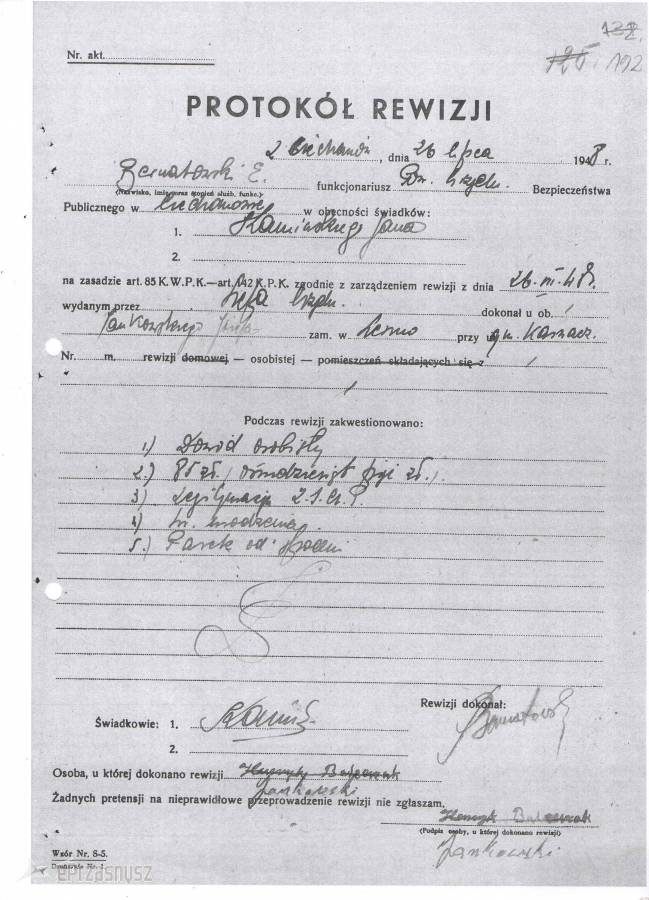 132.
125. 192
Nr. akt.
PROTOKÓŁ REWIZJI
Ciechanów, dnia 26 lipca 1948 r.
Bernatowski E. funkcjonariusz Pow. Urzędu Bezpieczeństwa
(Nazwisko, imię oraz stopień służb. funkc.)
Publicznego w Ciechanowie w obecności świadków:
1. Kamińskiego Jana
2.
na zasadzie art. 85 K.W.P.K.—art. 142 K.P.K. zgodnie z zarządzeniem rewizji z dnia 26.VII.48.
wydanym przez Szefa Urzędu dokonał u ob.
zam. w przy ul. gm.
Nr. m. rewizji domowej — osobistej — pomieszczeń składających się z
Podczas rewizji zakwestionowano:
1) Dowód osobisty
2) 85 zł. (osiemdziesiąt pięć zł.)
3) Legitymacja
4) urodzenia
5) Pasek od spodni
Rewizji dokonał:
Świadkowie: 1. Kamiń
2.
Osoba, u której dokonano rewizji Henryk Balcerzak
Jankowski
Żadnych pretensji na nieprawidłowe przeprowadzenie rewizji nie zgłaszam.
Henryk Balcerzak
(Podpis osoby, u której dokonano rewizji)
Jankowski
Wzór Nr. 8-5.
eprzasnysz